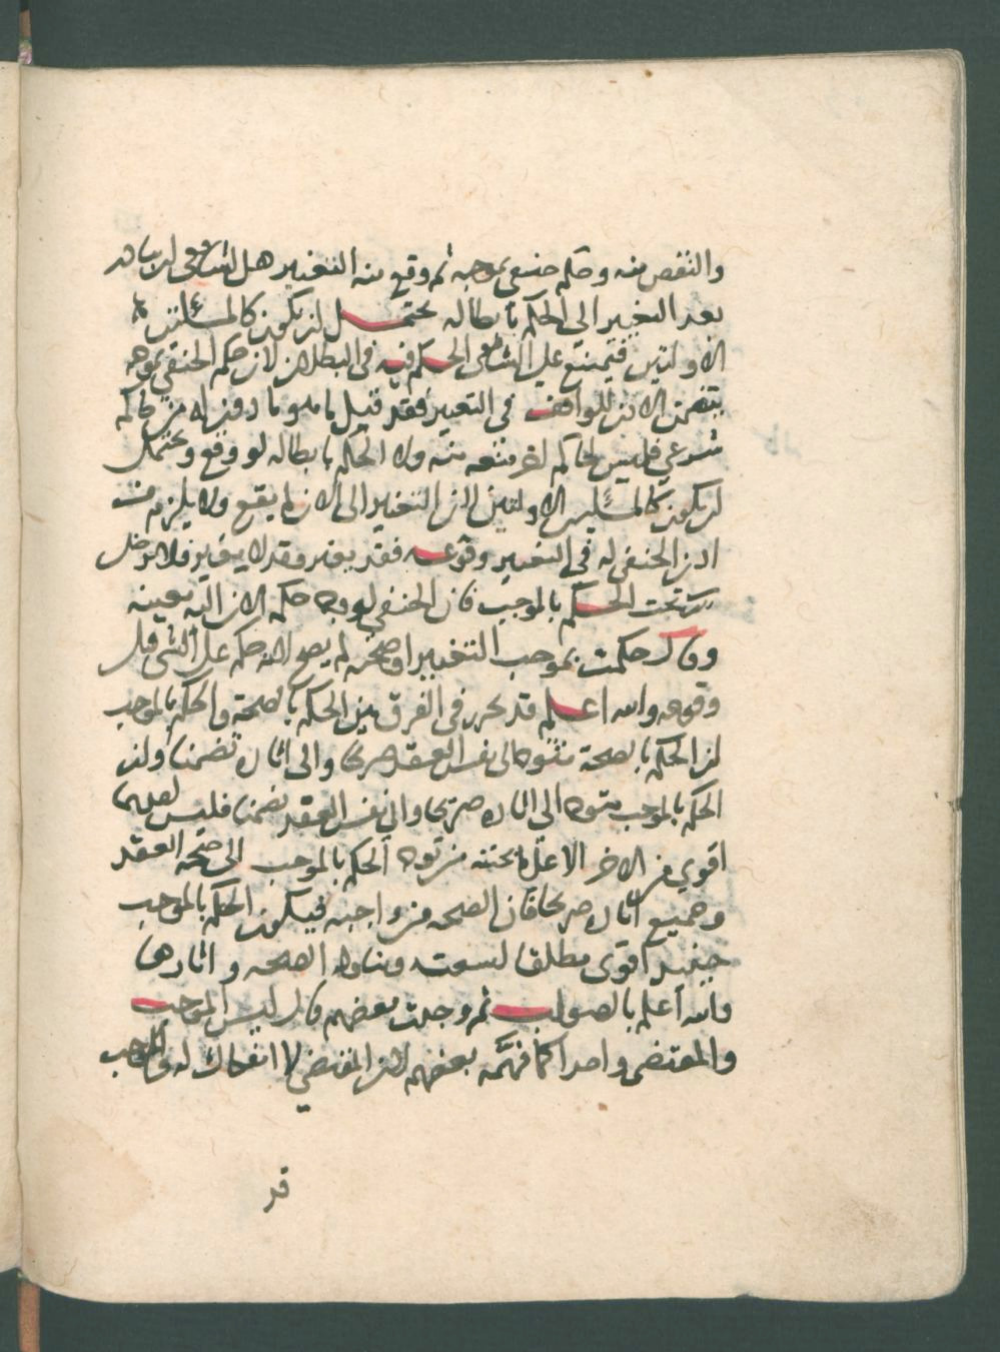 والنقص منه وحكم حنفي بموجبه ثم وقع منه التغيير هل لشافعي ان يبادر
بعد التغيير الى الحكم بابطاله يحتمل ان يكون كالمسئلتين
الاولتين فيمتنع على الشافعي الحكم فيه في البطلان لان حكم الحنفي بموجبه
يتضمن الاذن للواقف في التغيير فقد فعل ما هو ماذون له من حاكم
شرعي فليس لحاكم اخر منعه منه ولا الحكم بابطاله لو وقع ويحتمل
ان يكون كالمسئلتين الاولتين لان التغيير الى الان لم يقع ولا يلزم من
اذن الحنفي له في التغيير وقوعه فقد يغير وقد لا يغير فلا يدخل
تحت الحكم بالموجب فان الحنفي لو وجه حكمه الان اليه بعينه
وقال حكمت بموجب التغيير او صحته لم يصح لانه حكم على الشي قبل
وقوعه والله اعلم قد تحرر في الفرق بين الحكم بالصحة والحكم بالموجب
ان الحكم بالصحة متوجه الى نفس العقد صريحا والى اثاره تضمنا وان
الحكم بالموجب متوجه الى اثاره صريحا والى نفس العقد تضمنا فليس احدهما
اقوى من الاخر الا على ما بحثته من توجه الحكم بالموجب الى صحة العقد
وجميع اثاره صريحا فان الصحة من واجبه فيكون الحكم بالموجب
حينيد اقوى مطلقا لسعته وتناوله الصحه واثارها
والله اعلم بالصواب ثم وجدت بعضهم قال ليس الموجب
والمقتضى واحدا كما فهمه بعضهم لان المقتضي لا انفكاك له والموجب
قد